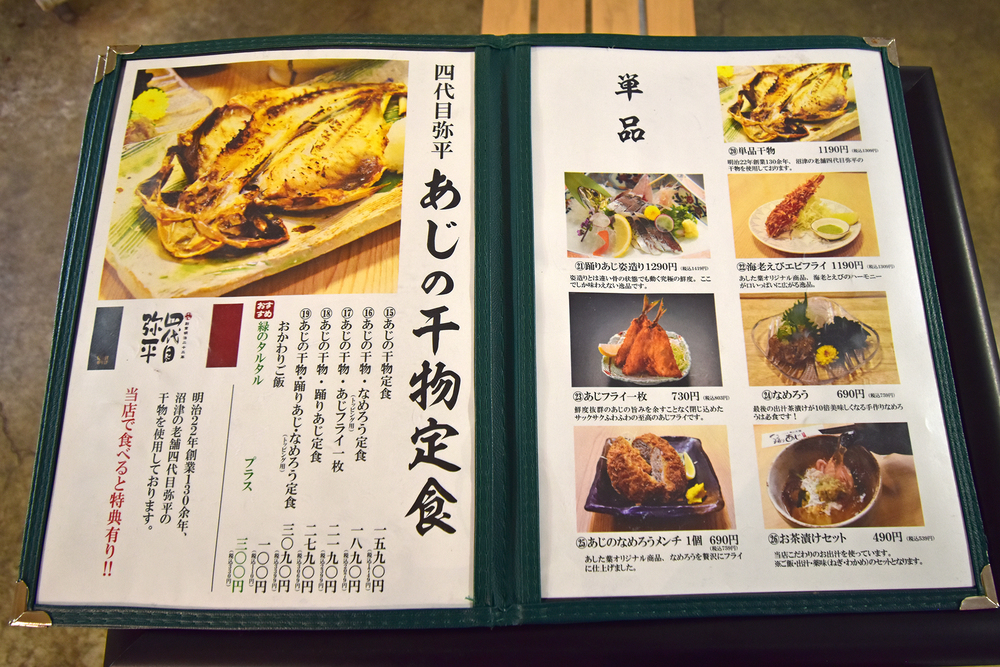 四代目弥平 あじの干物定食
⑮あじの干物定食 一五九〇円
⑯あじの干物・なめろう定食 一八九〇円
(トッピング用)
⑰あじの干物・あじフライ一枚 二一九〇円
⑱あじの干物・踊りあじ定食 二七九〇円
⑲あじの干物・踊りあじ・なめろう定食 三〇九〇円
(トッピング用)
おかわりご飯 一〇〇円
おすすめ
緑のタルタル プラス 三〇〇円
四代目
弥平
明治22年創業130余年、
沼津の老舗四代目弥平の
干物を使用しております。
当店で食べると特典有り!!
単品
⑳単品干物 1190円
明治22年創業130余年、沼津の老舗四代目弥平の
干物を使用しております。
㉑踊りあじ姿造り1290円 (税込1419円)
姿造りとは違い骨の状態でも動く究極の鮮度。ここ
でしか味わえない逸品です。
㉒海老えびエビフライ 1190円
あした葉オリジナル商品、海老とえびのハーモニー
が口いっぱいに広がる逸品。
㉓あじフライ一枚 730円 (税込803円)
鮮度抜群のあじの旨みを余すことなく閉じ込めた
サックサクふわふわの至高のあじフライです。
㉔なめろう 690円 (税込759円)
最後の出汁茶漬けが10倍美味しくなる手作りなめろ
うは必食です!
㉕あじのなめろうメンチ 1個 690円
(税込759円)
あした葉オリジナル商品、なめろうを贅沢にフライ
に仕上げました。
㉖お茶漬けセット 490円 (税込539円)
当店こだわりのお出汁を使っています。
※ご飯・出汁・薬味(ねぎ・わかめ)のセットとなります。